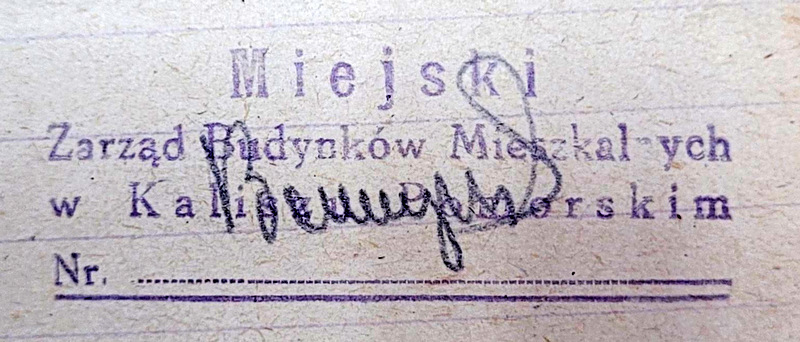 Miejski
Zarząd Budynków Mieszkalnych
w Kaliszu Pomorskim
Nr.